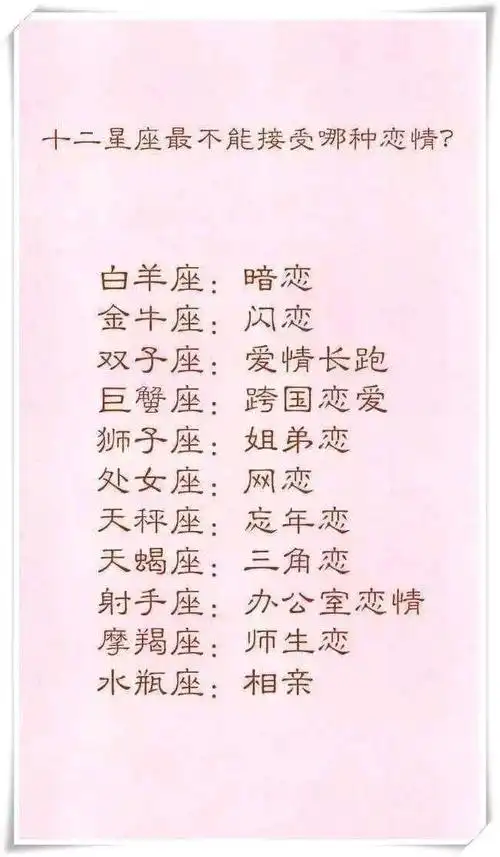 十二星座最不能接受哪种恋情?
白羊座：暗恋
金牛座：闪恋
双子座：爱情长跑
巨蟹座：跨国恋爱
狮子座：姐弟恋
处女座：网恋
天秤座：忘年恋
天蝎座：三角恋
射手座：办公室恋情
摩羯座：师生恋
水瓶座：相亲